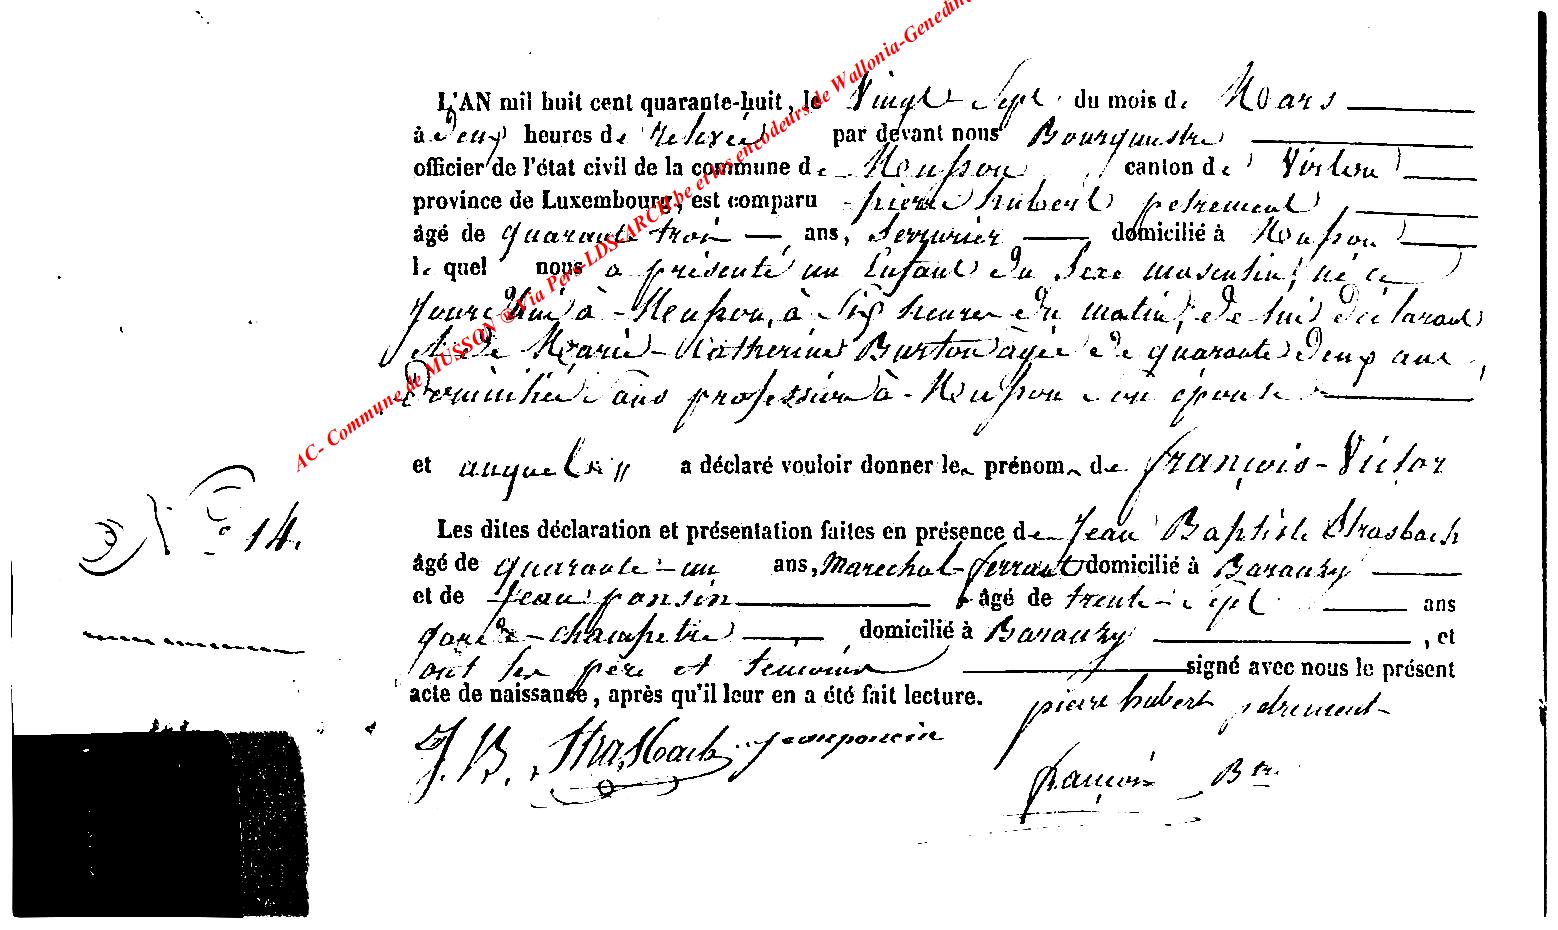 L'AN mil huit cent quarante-huit, le Vingt Sept du mois de Mars
à deux heures de relevée par devant nous Bourgmestre
officier de l'état civil de la commune de Musson canton de Virton
province de Luxembourg, est comparu pierre hubert petrement
âgé de quarante trois ans, Serrurier domicilié à Musson
le quel nous a présenté un Enfant du Sexe masculin, né ce
jourd'hui à Musson, à Six heures du matin, de lui déclarant
et de Marie-Catherine Burton âgée de quarante deux ans,
Domiciliée sans profession à Musson son épouse
et auquel il a déclaré vouloir donner les prénoms de françois-Victor
N° 14.
Les dites déclaration et présentation faites en présence de Jean Baptiste Strasbach
âgé de quarante-un ans, Marechal-ferrant domicilié à Baranzy
et de Jean ponsin âgé de trente-sept ans
garde-champetre domicilié à Baranzy, et
ont les père et témoins signé avec nous le présent
acte de naissance, après qu'il leur en a été fait lecture.
pierre hubert petrement
J. B. Strasbach jean poncin
françois Btre
AC- Commune de MUSSON @ Via Pers-LDS-ARCH.be et les encodeurs de Wallonia-Genedin